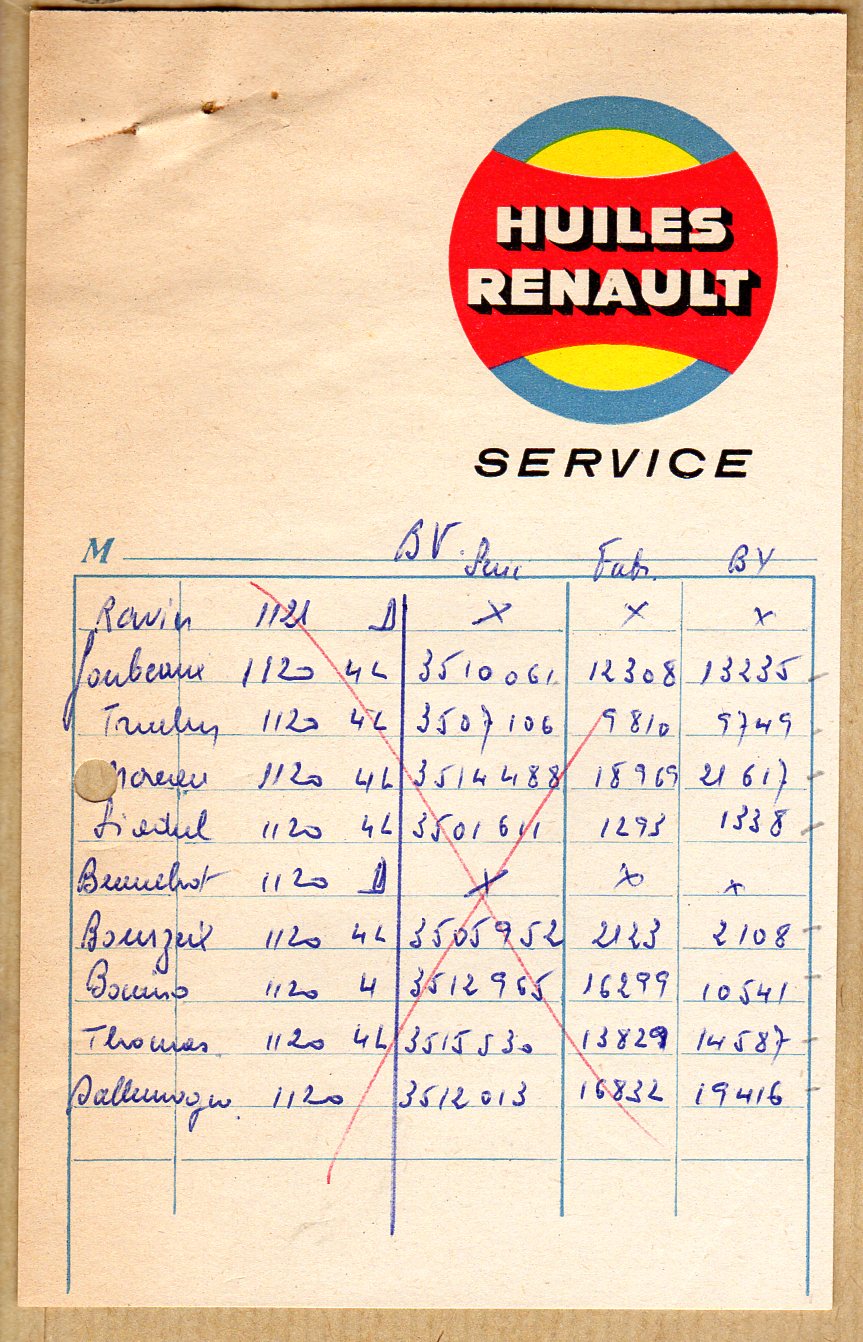 HUILES
RENAULT
SERVICE
M BV. Serie Fabr. BV
Ravin 1121 D x x x
1120 4L 3510061 12308 13235
1120 4L 3507106 9810 9749
1120 4L 3514488 18969 21617
1120 4L 3501611 1293 1338
1120 D x x x
1120 4L 3505952 2123 2108
Bouino 1120 4 3512965 16299 10541
Thomas 1120 4L 3515530 13829 14587
Dallemagne 1120 3512013 16832 19416